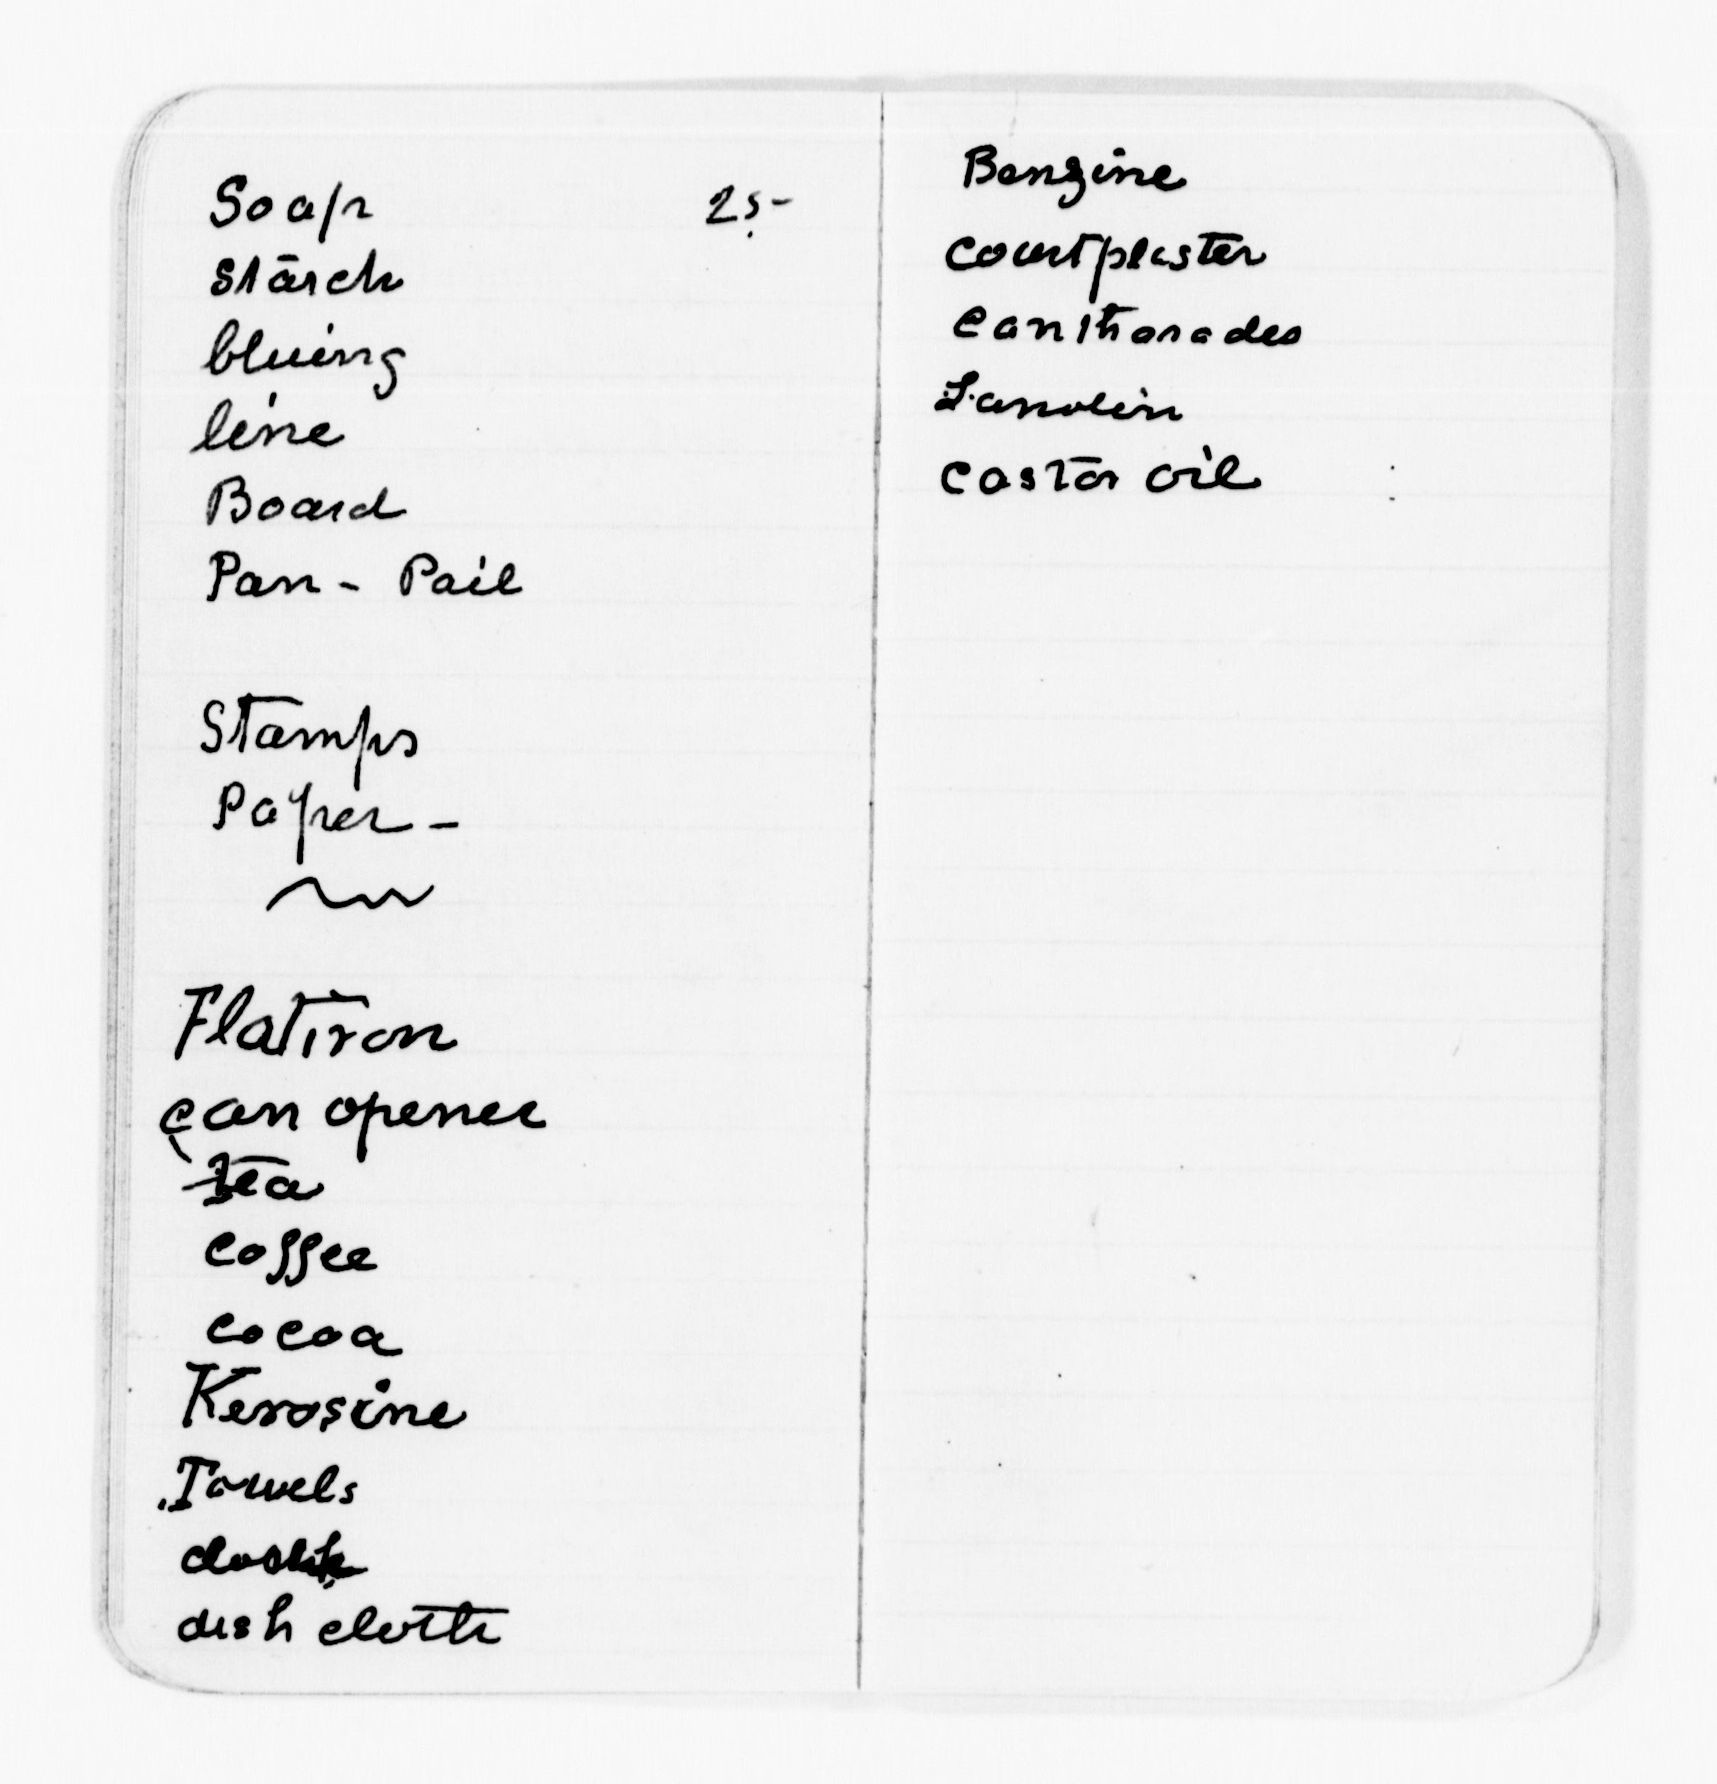 Soap 25-
Starch
bluing
line
Board
Pan - Pail
Stamps
Paper -
Flatiron
can opener
tea
coffee
cocoa
Kerosine
Towels
dish cloth
Benzine
courtplaster
cantharades
Lanolin
castor oil